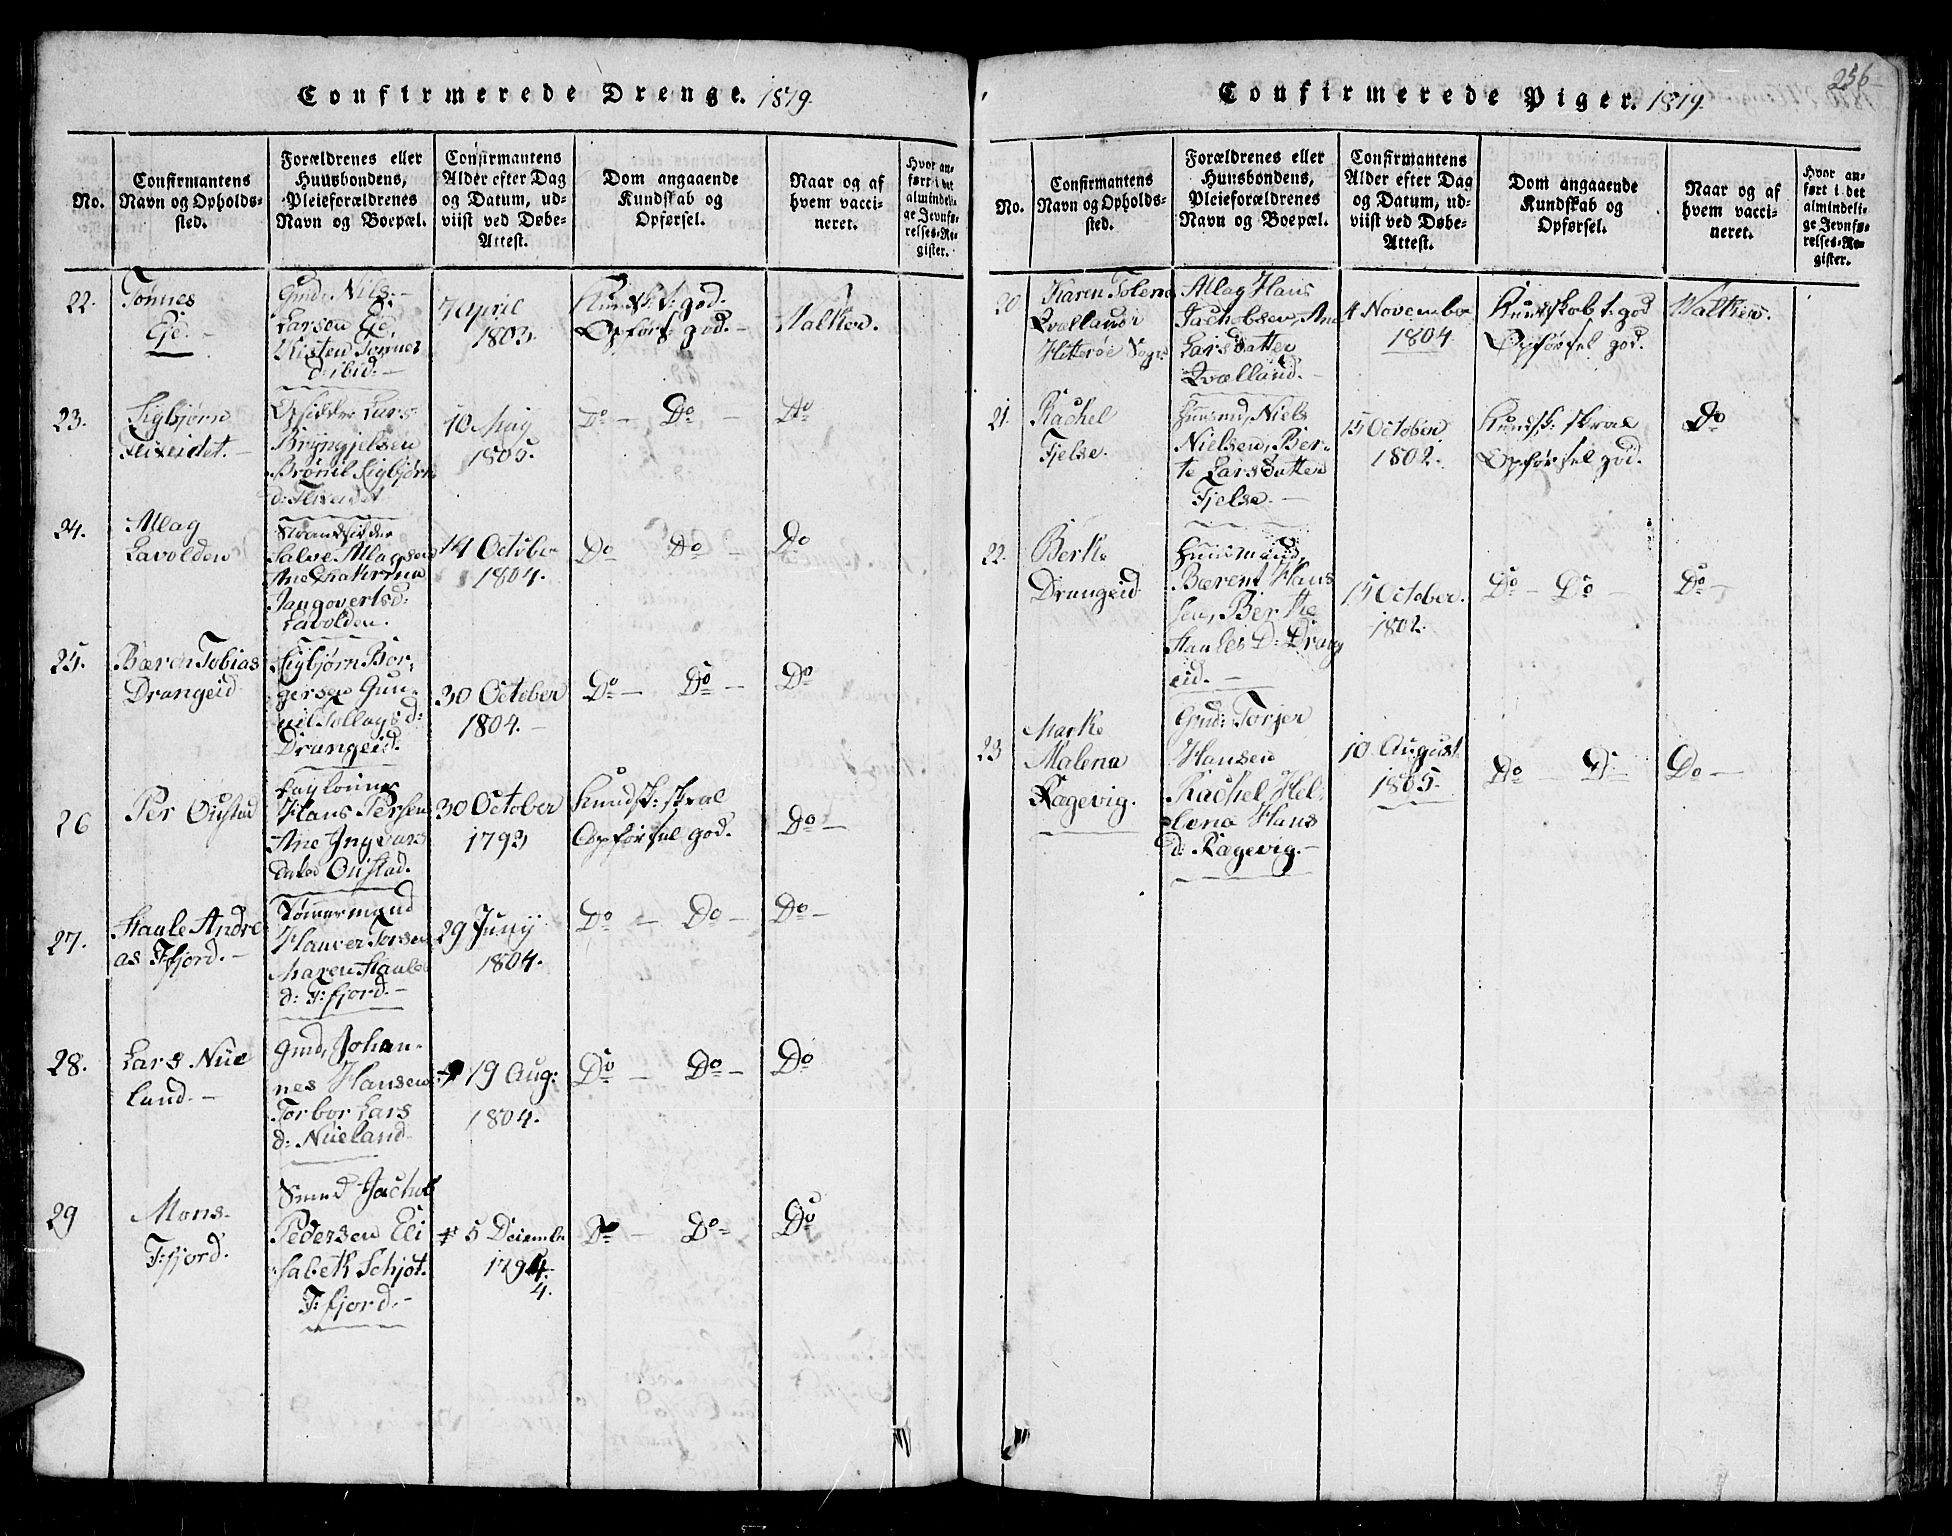 Confirmerede Drenge. 1819.
No.
Confirmantens
Navn og Opholds-
sted.
Forældrenes eller
Huusbondens,
Pleieforældrenes
Navn og Boepæl.
Confirmantens
Alder efter Dag
og Datum, ud-
viist ved Døbe-
Attest.
Dom angaaende
Kundskab og
Opførsel.
Naar og af
hvem vacci-
neret.
Hvor an-
ført i det
almindeli-
ge Jevnfø-
relses-Re-
gister.
22.
Tønnes
Eje.
Gmd: Nils
Larsen Eje,
Kirsten Tønnes
d: ibid.
7 April
1803.
Kundsk: t: god.
Opførs: god.
Walken.
23.
Sigbjørn
Flixeidet.
Lars
Bryngjelsen
Sigbjørn
d: Flixeidet
10 May
1805.
Do Do
Do
24.
Atlag
Lavolden
Strandsidder
Salve Atlagsen
Ane Chaterina
Jangovertsd:
Lavolden.
14 October
1804.
Do Do
Do
25.
Bæren Tobias
Drangeid
Sigbjørn Bør-
gersen Gun-
nil Tollagsd:
Drangeid.
30 October
1804.
Do Do
Do
26
Per Øustad
Hans Persen
Ane Ingvars
datter Øustad.
30 October
1793
Kundsk: skral
Opførsel god.
Do
27.
Staule Andre
as F:fjord.
Tømmermand
Hauver Torsen
Maren Staules
d: F:fjord.
29 Juny
1804.
Do Do
Do
28.
Lars Nüe
land.
Gmd, Johan-
nes Hansen
Torbor Lars
d: Nüeland
19 Aug:
1804.
Do Do
Do
29
Mons
F:fjord.
Smed Jachob
Pedersen Eli
sabeth Schjøt.
F:fjord.
5 Decembr
1794
4.
Do Do
Do
256
Confirmerede Piger. 1819.
No.
Confirmantens
Navn og Opholds-
sted.
Forældrenes eller
Huusbondens,
Pleieforældrenes
Navn og Boepæl.
Confirmantens
Alder efter Dag
og Datum, ud-
viist ved Døbe-
Attest.
Dom angaaende
Kundskab og
Opførsel.
Naar og af
hvem vacci-
neret.
Hvor an-
ført i det
almindeli-
ge Jevnfø-
relses-Re-
gister.
20
Karen Tolena
Qvælland
Hitterøe Sogn
Atlag Hans
Jachobsen, Ane
Larsdatter
Qvælland.
4 November
1804
Kundskab t: god
Opførsel god.
Walken.
21.
Rachel
Fjelse.
Huusmd, Niels
Nielsen, Ber-
te Larsdatter
Fjelse.
15 October
1802.
Kundsk: skral
Opførsel god.
Do
22.
Berthe
Drangeid
Huusmand,
Bærent Hans
sen, Berthe
Staules D: Drang
eid.
15 October.
1802.
Do Do
Do
23
Marthe
Malena
Ragevig.
Gmd: Torjer
Hansen
Rachel Hel-
lena Hans
d: Ragevig.
10 August
1805.
Do Do
Do